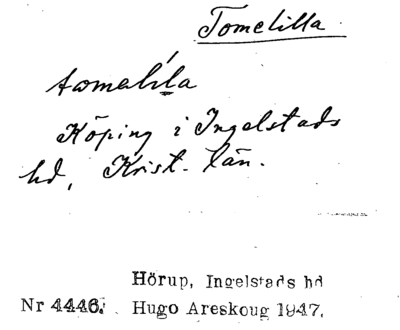 Tomelilla
Köping i Ingelstads
hd, Krist. län.
Hörup, Ingelstads hd
Nr 4446. Hugo Areskoug 1947.